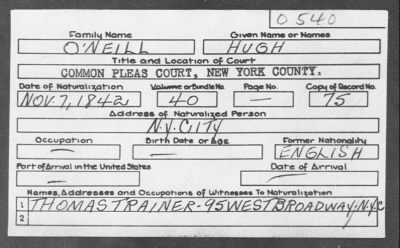 O 540
Family Name Given Name or Names
O'NEILL HUGH
Title and Location of Court
COMMON PLEAS COURT, NEW YORK COUNTY.
Date of Naturalization Volume or Bundle No. Page No. Copy of Record No.
NOV. 7, 1842 40 — 75
Address of Naturalized Person
N.Y. CITY
Occupation Birth Date or Age Former Nationality
— — ENGLISH
Port of Arrival in the United States Date of Arrival
— —
Names, Addresses and Occupations of Witnesses To Naturalization
1 THOMAS TRAINER - 95 WEST BROADWAY, N.Y.C
2